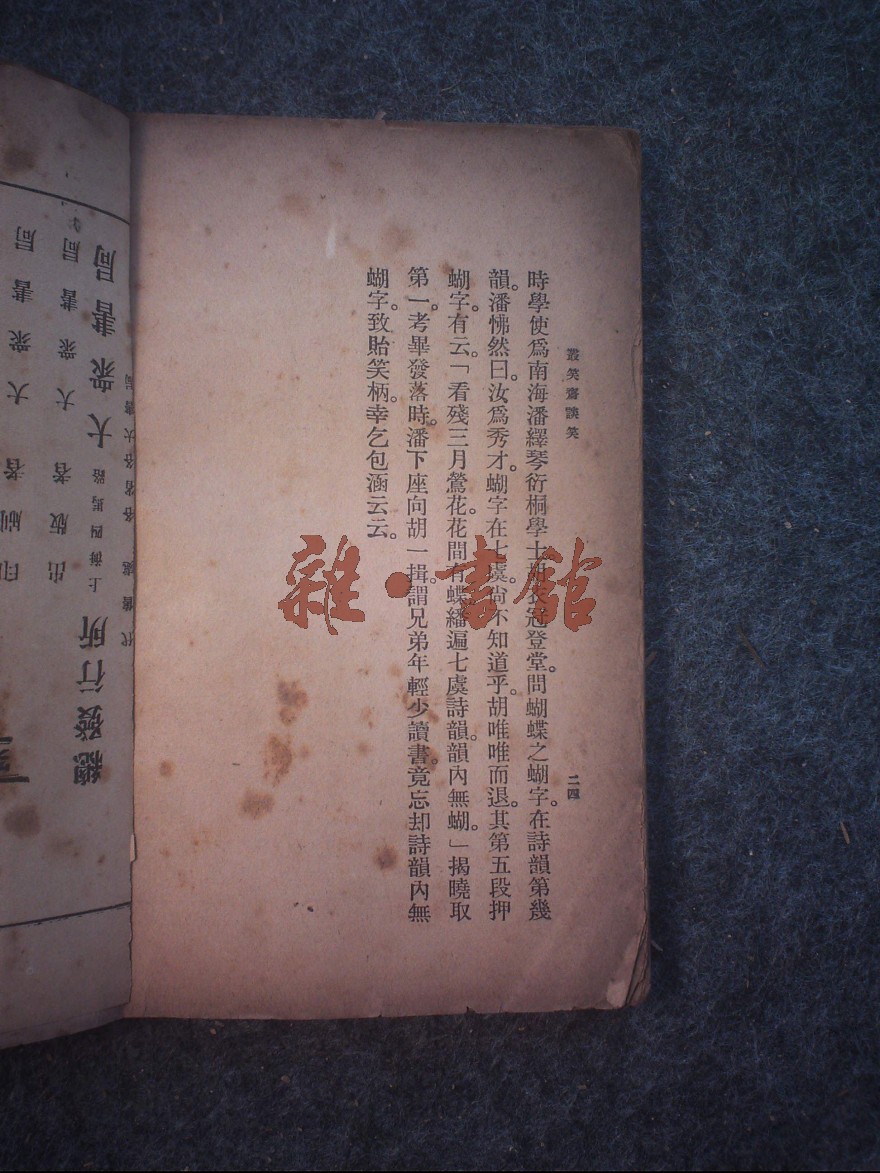 叢笑齋談笑
二四
時學使爲南海潘繹琴衍桐學士胡衣冠登堂。問蝴蝶之蝴字。在詩韻第幾
韻。潘怫然曰。汝爲秀才。蝴字在七虞。尙不知道乎。胡唯唯而退。其第五段押
蝴字。有云。「看殘三月鶯花。花間有蝶。繙遍七虞詩韻。韻內無蝴。」揭曉取
第一。考畢發落時。潘下座向胡一揖。謂兄弟年輕少讀書。竟忘却詩韻內無
蝴字。致貽笑柄。幸乞包涵云云。
雜·書館
總發行所
上海四馬路
大衆書局
出版者
大衆書局
印刷者
大衆書局